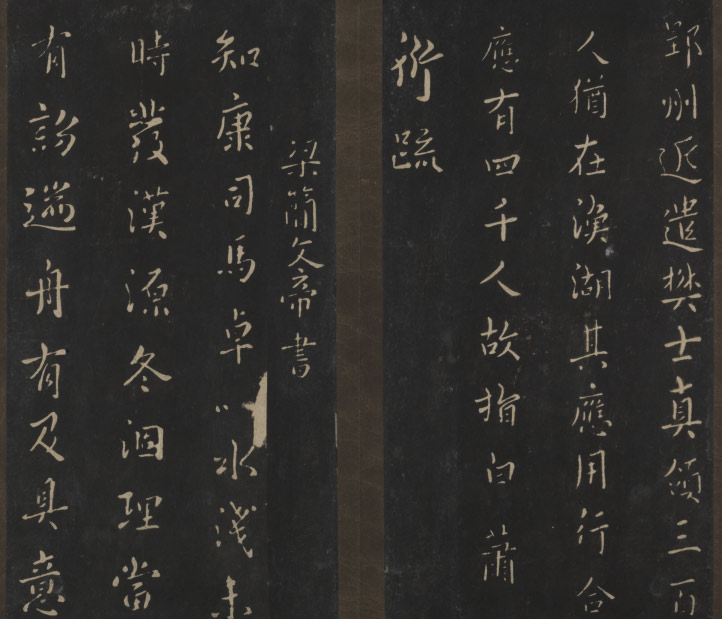 郢州近遣樊士真領三百
人猶在漢湖其應用行合
應有四千人故指白蕭
衍疏
梁簡文帝書
知康司馬卓以水淺未
時發漢源冬涸理當
有訪遄舟有及具意